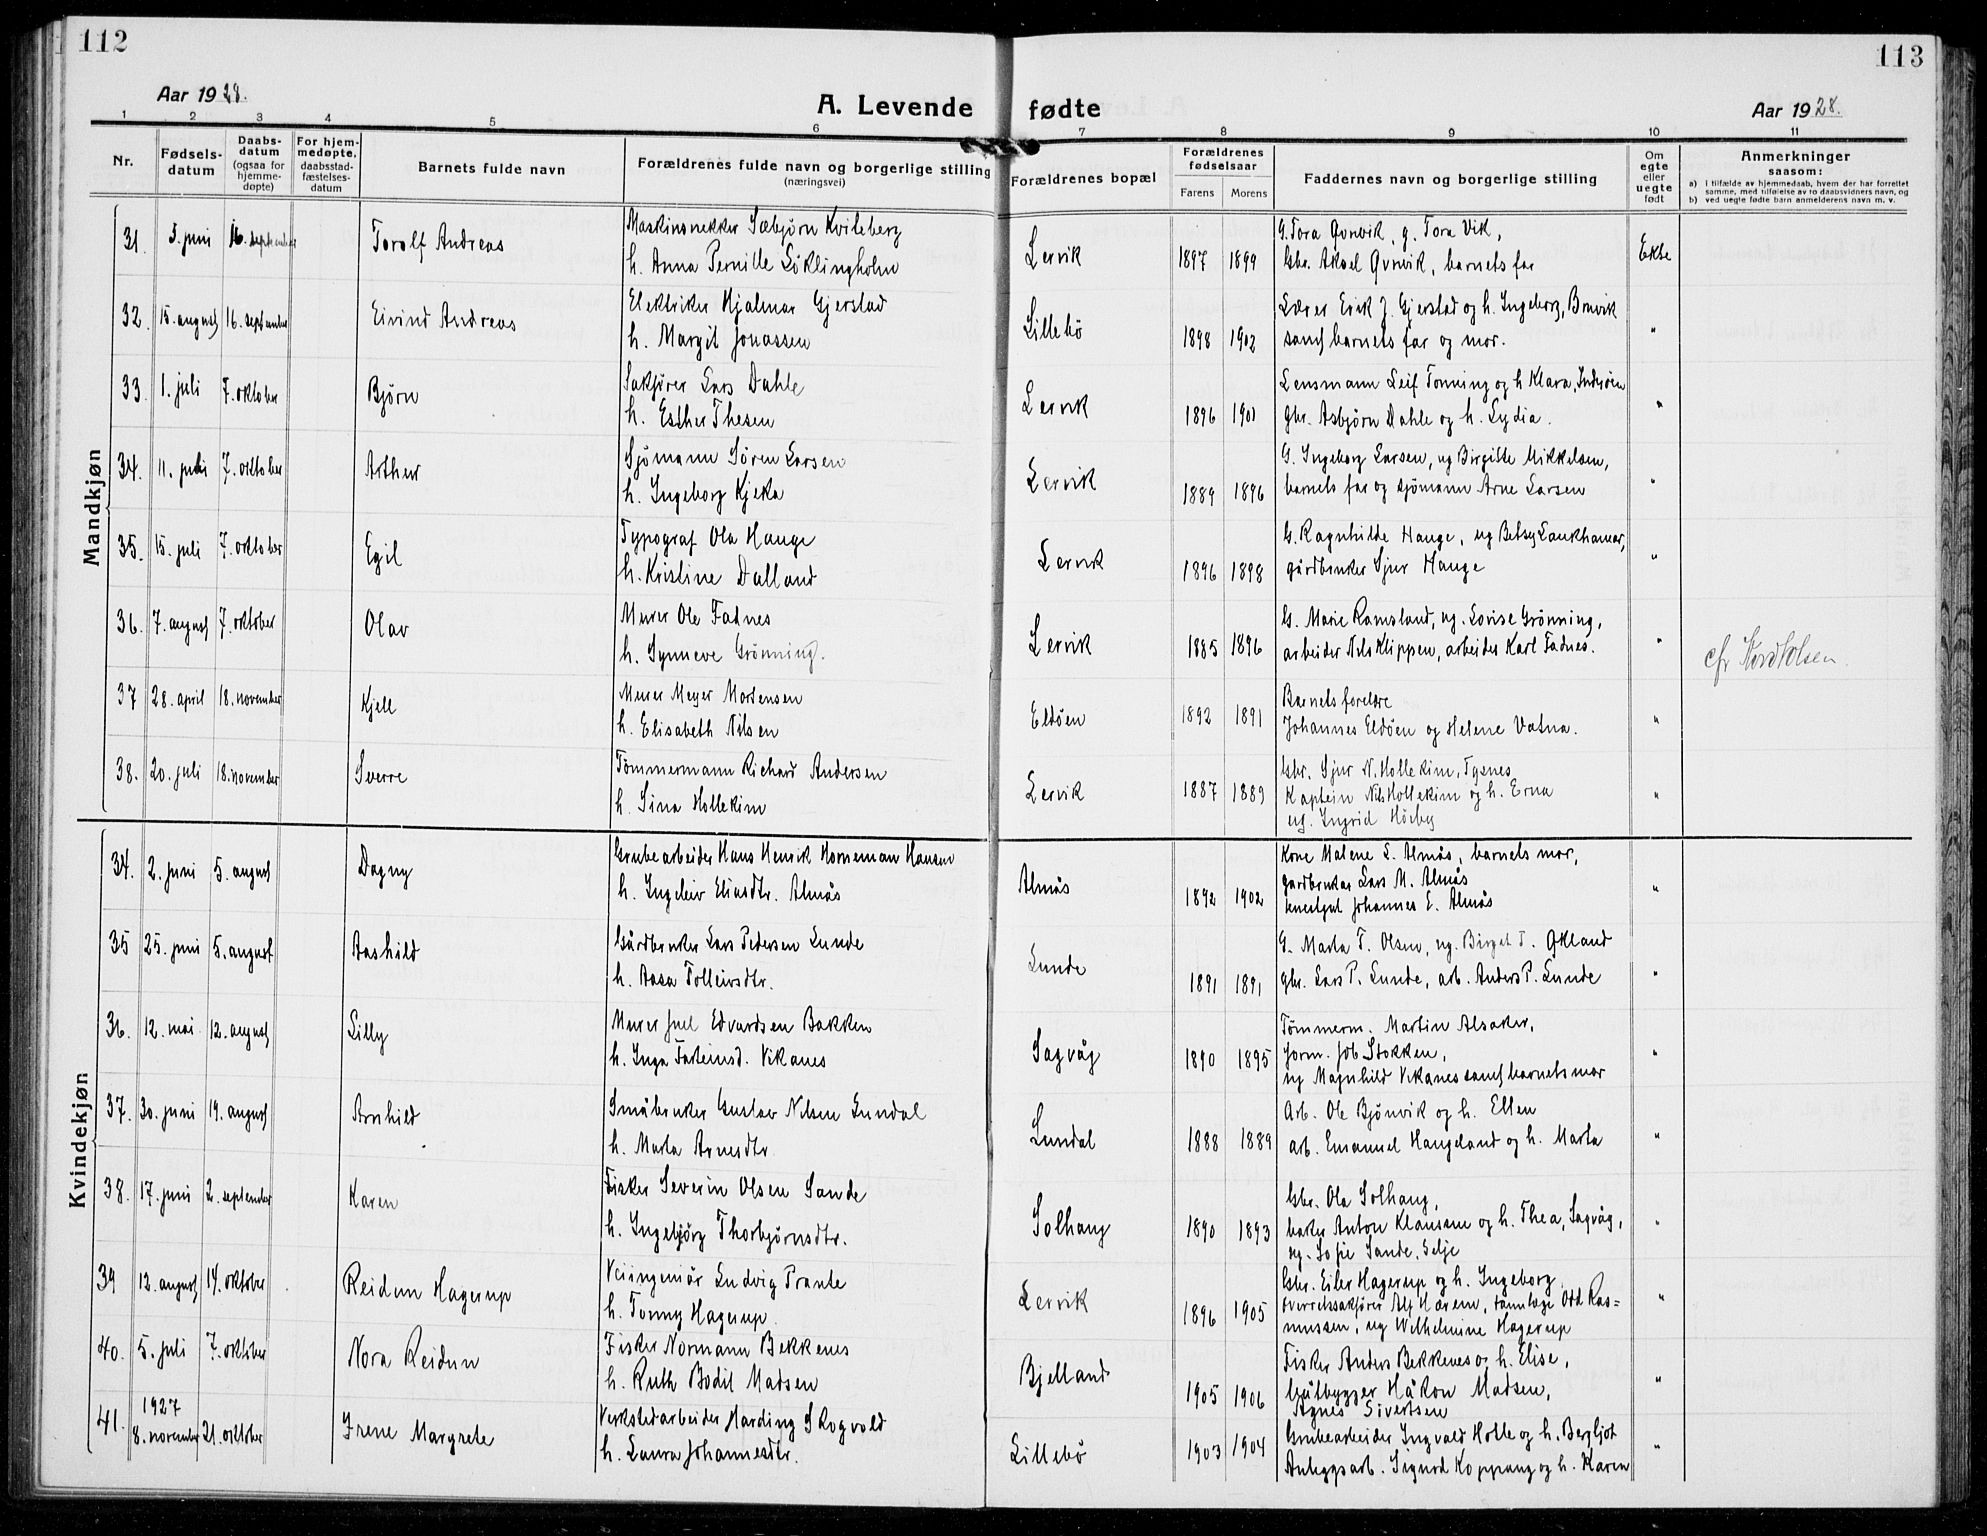 112
113
Aar 1928.
A. Levende fødte
Aar 1928.
1 2 3 4 5 6 7 8 9 10 11
Nr.
Fødsels-
datum
Daabs-
datum
(ogsaa for
hjemme-
døpte)
For hjem-
medøpte,
daabsstad-
fæstelses-
datum
Barnets fulde navn
Forældrenes fulde navn og borgerlige stilling
(næringsvei)
Forældrenes bopæl
Forældrenes
fødselsaar
Farens Morens
Faddernes navn og borgerlige stilling
Om
egte
eller
uegte
født
Anmerkninger
saasom:
a) i tilfælde av hjemmedaab, hvem der har forrettet
samme, med tilføielse av to daabsvidners navn, og
b) ved uegte fødte barn anmelderens navn m. v.
Mandkjøn
31. 3. juni 16. september Torolf Andreas
Maskinsnekker Sæbjørn Kvileberg
h. Anna Pernille Løklingholm
Lervik 1897 1899
G. Tora Qvnvik, g. Tora Vik,
Gbr. Aksel Qvnvik, barnets far
Ekte
32. 15. august 16. september Eivind Andreas
Elektriker Hjalmar Gjerstad
h. Margit Jonassen
Lillebö 1898 1902
Lærer Erik J. Gjerstad og h. Ingeborg, Brnvik
samt barnets far og mor.
"
33. 1. juli 7. oktober Bjørn
Sakfører Lars Dahle
h. Esther Thesen
Lervik 1896 1901
Lensmann Leif Tonning og h Klara, Indrøen
gbr. Asbjørn Dahle og h. Lydia.
"
34. 11. juli 7. oktober Arthur
Sjömann Sören Larsen
h. Ingeborg Kjeka
Lervik 1889 1896
G. Ingeborg Larsen, ug Birgitte Mikkelsen,
barnets far og sjömann Arne Larsen
"
35. 15. juli 7. oktober Egil
Typograf Ola Hauge
h. Kristine Dalland
Lervik 1896 1898
G. Ragnhilde Hauge, ug Betsy Laukhamar,
gårdbruker Sjur Hauge
"
36. 7. august 7. oktober Olav
Murer Ole Fadnes
h. Synneve Grönning.
Lervik 1885 1896
G. Marie Ramsland, ug. Lovise Grönning,
arbeider Nils Klippen, arbeider Karl Fadnes.
"
cfr
37 28. april 18. november Kjell
Murer Meyer Mortensen
h. Elisabeth Nilsen
Eldöen 1892 1891
Barnets foreldre
Johannes Eldöen og Helene Vatna.
"
38. 20. juli 18. november Sverre
Tömmermann Richard Andersen
h. Sina Hollekim
Lervik 1887 1889
Gbr. Sjur N. Hollekim, Tysnes
Kaptein Nils Hollekim og h. Erna
ug. Ingrid Höiby
"
Kvindekjøn
34. 2. juni 5. august Dagny
Grubearbeider Hans Henrik Horneman Hansen
h. Ingeleiv Eliasdtr. Almås
Almås 1892 1902
Kone Malene L. Almås, barnets mor,
gardbruker Lars M. Almås
Johannes E. Almås
"
35 25. juni 5. august Aashild
Gårdbruker Lars Pedersen Lunde
h. Aasa Tolleivsdtr.
Lunde 1891 1891
G. Marta T. Olsen, ug. Birgit T. Økland
gbr. Lars P. Lunde, arb. Anders P. Lunde
"
36. 12. mai. 12. august Lilly
Murer Juel Edvardsen Bakken
h. Inga Fasteinsd. Vikanes
Sagvåg 1890 1895
Tömmerm. Martin Alsaker,
form. Job Stokken,
ug Magnhild Vikanes samt barnets mor
"
37. 30. juni 19. august Arnhild
Småbruker Gustav Nilsen Lundal
h. Marta Arnesdtr
Lundal 1888 1889
Arb. Ole Bjönvik og h. Ellen
arb. Emanuel Haugeland og h. Marta
"
38. 17. juni 2. september Karen
Fisker Severin Olsen Sande
h. Ingebjörg Thorbjørnsdtr.
Solhaug 1890 1893
Gbr. Ola Solhaug,
baker Anton Klausen og h. Thea, Sagvåg,
ug. Sofie Sande, Selje
"
39 12. august 14. oktober Reidun Hagerup
Veiingeniör Ludvig Prante
h. Tonny Hagerup
Lervik 1896 1905
Gbr. Eiler Hagerup og h. Ingeborg
overretssakfører Alf Hærem, tannlæge Odd Ras=
mussen, ug Wilhelmine Hagerup
"
40. 5. juli 7. oktober Nora Reidun
Fisker Normann Bekkenes
h. Ruth Bodil Madsen
Bjelland 1905 1906
Fisker Anders Bekkenes og h. Elise,
Båtbygger Håkon Madsen,
Agnes Sivertsen
"
41. 1927
8. november 21. oktober Irene Margrete
Verkstedarbeider Harding Skogvold
h. Laura Johannesdtr.
Lillebö 1903 1904
Grubearbeider Ingvald Holle og h. Bergljot
Anleggsarb. Sigurd Koppang og h. Karen
"